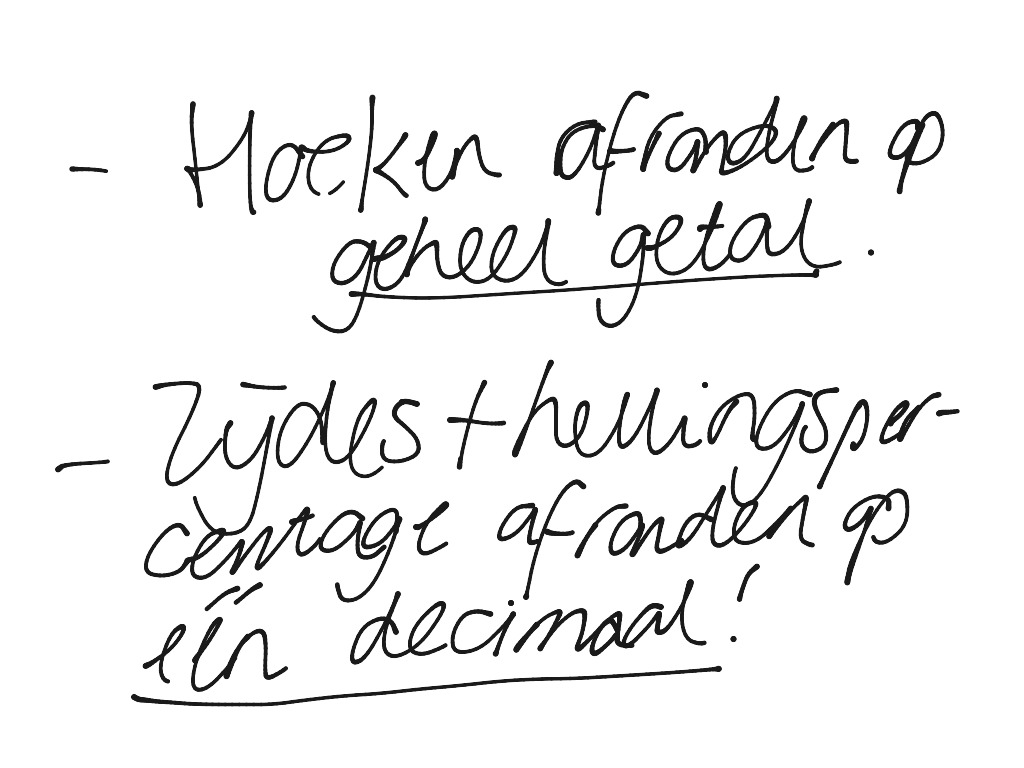 - Hoeken afronden op
geheel getal.
- Zijdes + hellingsper-
centage afronden op
één decimaal!